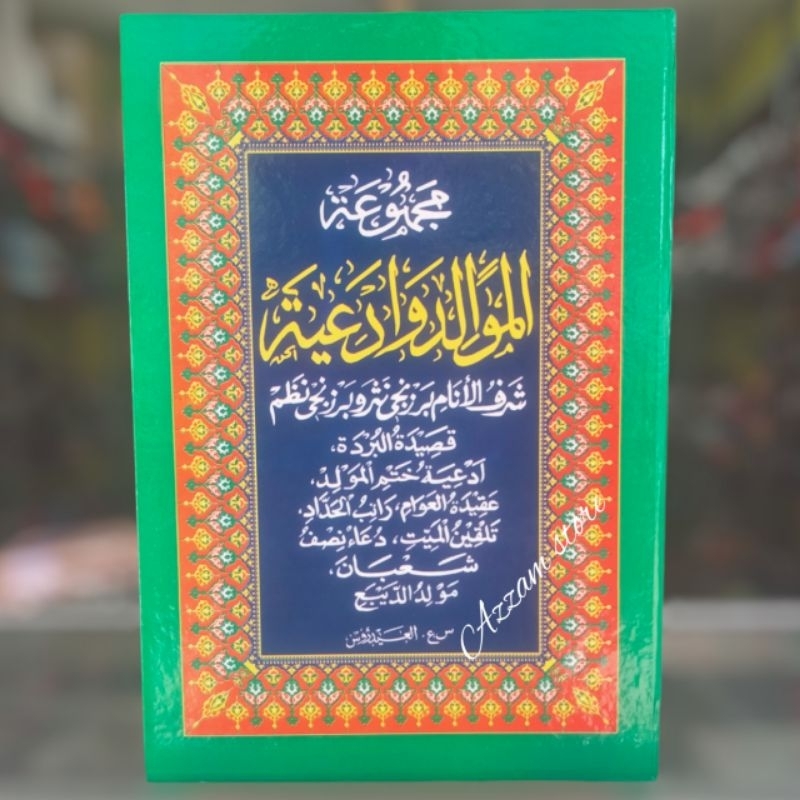 مَجْمُوْعَة
المَوَالِد وَادْعِيَة
شَرَفُ الأَنَامِ بَرْزَنْجِي نَثَر وبَرْزَنْجِي نَظَمْ
قَصِيْدَةُ البُرْدَة،
اَدْعِيَةُ خَتْمِ المَوْلِدْ،
عَقِيْدَةُ العَوَام، رَاتِبُ الحَدَّادِ،
تَلْقِيْنُ المَيِّتِ، دُعَاءْ نِصْفُ
شَعْبَانَ،
مَوْلِدُ الدَّيْبَعِ
س.ع. العَيْدَرُوْس
Azzam store